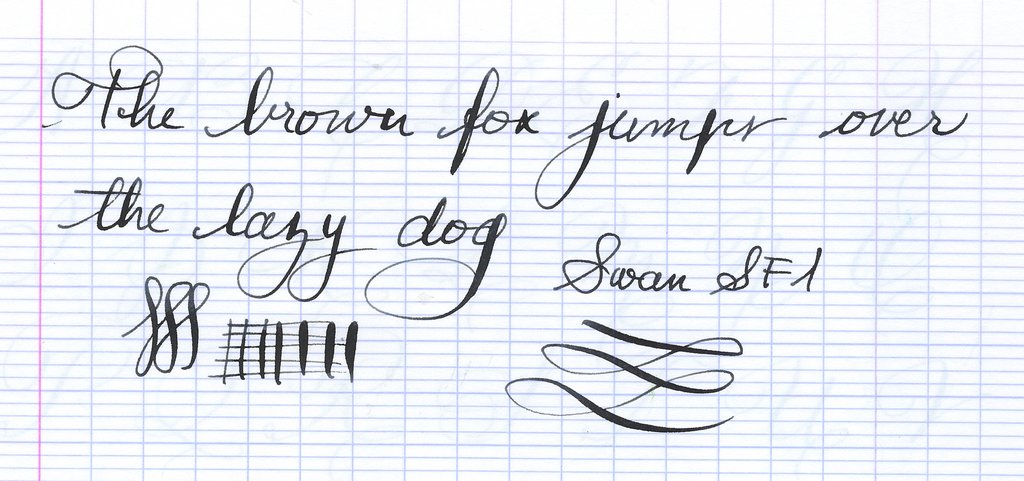 The brown fox jumps over
the lazy dog
Swan SF1